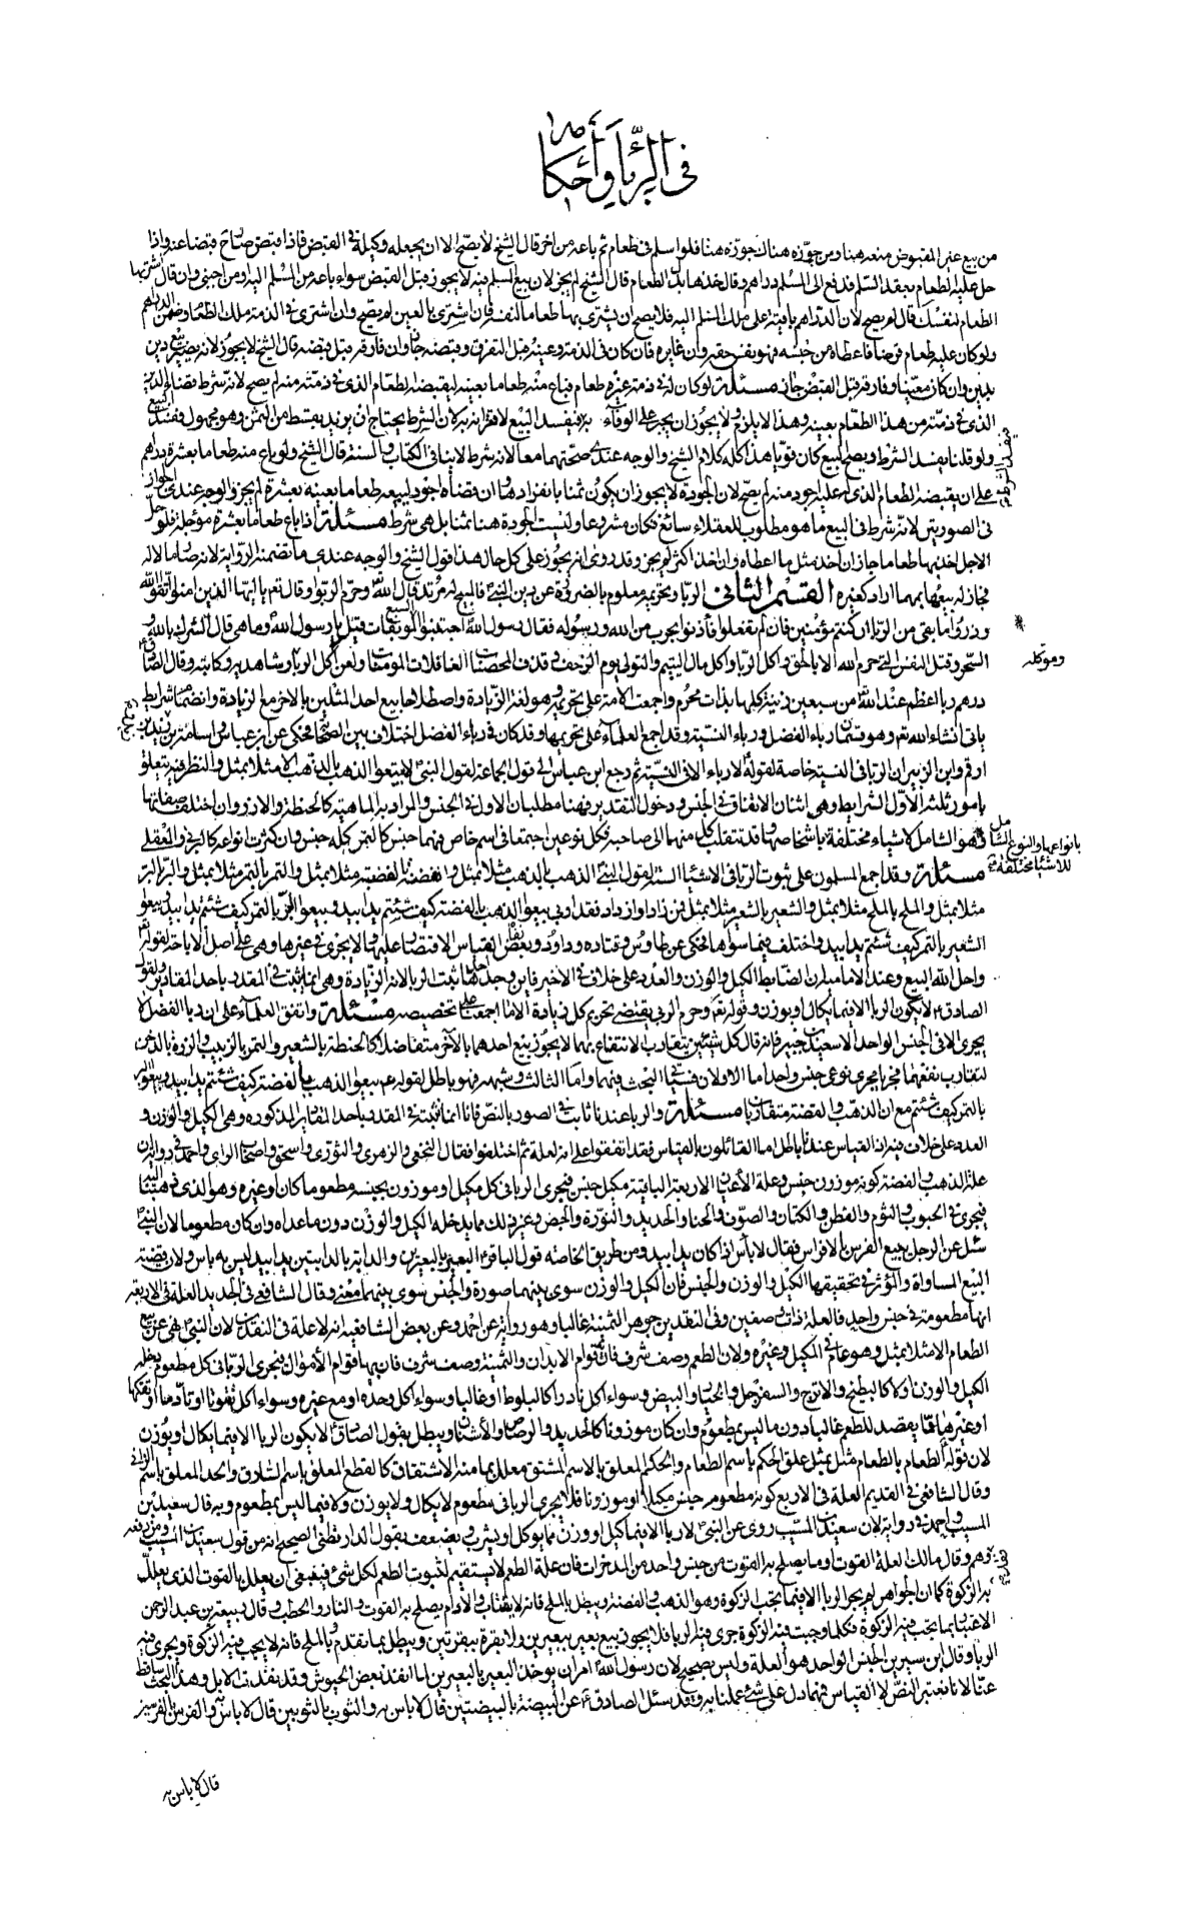 في الربا وأحكامه
من بيع غير المقبوض منعه هنا ومن جوزه هناك جوزه هنا فلو اسلم في طعام ثم باعه من اخر قال الشيخ لا يصح الا ان يجعله وكيله في القبض فاذا قبض صار قبضا عنه واذا
حل عليه الطعام بعقد السلم فدفع الى المسلم دراهم وقال خذها بدل الطعام قال الشيخ لم يجز لان بيع المسلم فيه لا يجوز قبل القبض سواء باعه من المسلم اليه او من اجنبي وان قال اشتر بها
الطعام لنفسك قال لم يصح لان الدراهم باقية على ملك المسلم اليه فلا يصح ان يشتري بها طعاما لنفسه فان اشترى بالعين لم يصح وان اشترى في الذمة ملك الطعام وضمن الدراهم
ولو كان عليه طعام قرضا فاعطاه من جنسه فهو نفس حقه وان غايره فان كان في الذمة وعينه قبل التفرق وقبضه جاز وان فارقه قبل قبضه قال الشيخ لا يجوز لانه يصير بيع دين
بدين وان كان معينا وفارقه قبل القبض جاز مسئلة لو كان له في ذمة غيره طعام فباع منه طعاما بعينه ليقبضه الطعام الذي في ذمته منه لم يصح لانه شرط قضاء الدين
الذي في ذمته من هذا الطعام بعينه وهذا لا يلزم ولا يجوز ان يجبر على الوفاء به فيفسد البيع لاقترانه به لان الشرط يحتاج ان يزيد بقسط من الثمن وهو مجهول ففسد البيع
ولو قلنا يفسد الشرط ويصح البيع كان قويا هذا كله كلام الشيخ والوجه عندي صحتهما معا لانه شرط لا ينافي الكتاب والسنة قال الشيخ ولو باع منه طعاما بعشرة دراهم
على ان يقبضه الطعام الذي له عليه اجود منه لم يصح لان الجودة لا يجوز ان يكون ثمنا بانفرادها وان قضاه اجود ليبيعه طعاما بعينه بعشرة لم يجز والوجه عندي الجواز
في الصورتين لانه شرط في البيع ما هو مطلوب للعقلاء سائغ فكان مشروعا وليست الجودة هنا ثمنا بل هي شرط مسئلة اذا باع طعاما بعشرة مؤجلة فلو حل
الاجل اخذ بها طعاما جاز ان اخذ مثل ما اعطاه وان اخذ اكثر لم يجز وقد روي انه يجوز على كل حال هذا قول الشيخ والوجه عندي ما تضمنه الرواية لانه صار مالا له
فجاز له بيعها بمهما اراد كغيره القسم الثاني الربا وتحريمه معلوم بالضرورة عن دين النبي فالمبيح له مرتد قال الله وحرم الربوا وقال تعم يا ايها الذين امنوا اتقوا الله
وذروا ما بقي من الربا ان كنتم مؤمنين فان لم تفعلوا فأذنوا بحرب من الله ورسوله فقال رسول الله اجتنبوا السبع الموبقات قيل يا رسول الله وما هي قال الشرك بالله و
السحر وقتل النفس التي حرم الله الا بالحق واكل الربا واكل مال اليتيم والتولي يوم الزحف وقذف المحصنات الغافلات المؤمنات ولعن آكل الربا وشاهديه وكاتبه وقال الصادق
وموكله
درهم ربا اعظم عند الله من سبعين زنية كلها بذات محرم واجمعت الامة على تحريمه وهو لغة الزيادة واصطلاحا بيع احد المثلين بالاخر مع الزيادة وانضمام شرايط
ياتي انشاء الله تعم وهو قسمان رباء الفضل ورباء النسية وقد اجمع العلماء على تحريمهما وقد كان في رباء الفضل اختلاف بين الصحابة فحكي عن ابن عباس واسامة بن زيد وزيد بن
ارقم وابن الزبير ان الربا في النسية خاصة لقوله لا رباء الا في النسية ثم رجع ابن عباس الى قول الجماعة لقول النبي لا تبيعوا الذهب بالذهب الا مثلا بمثل والنظر فيه يتعلق
بامور ثلثة الاول الشرايط وهي اثنان الاتفاق في الجنس ودخول التقدير فهنا مطلبان الاول في الجنس والمراد به الماهية كالحنطة والارز وان اختلف صفاتها
وهو الشامل لاشياء مختلفة باشخاصها وقد تنقلب كل منهما الى صاحبه فكل نوعين اجتمعا في اسم خاص فهما جنس كالتمر كله جنس وان كثرت انواعه كالبرني والمعقلي
بانواعها والنوع الشامل
للاشياء مختلفة
مسئلة وقد اجمع المسلمون على ثبوت الربا في الاشياء الستة لقول النبي الذهب بالذهب مثلا بمثل والفضة بالفضة مثلا بمثل والتمر بالتمر مثلا بمثل والبر بالبر
مثلا بمثل والملح بالملح مثلا بمثل والشعير بالشعير مثلا بمثل فمن زاد او ازداد فقد اربى بيعوا الذهب بالفضة كيف شئتم يدا بيد وبيعوا البر بالتمر كيف شئتم يدا بيد وبيعوا
الشعير بالتمر كيف شئتم يدا بيد واختلف فيما سواها فحكي عن طاوس وقتاده وداود وبعض نفاة القياس الاقتصار عليها ولا يجري في غيرها وهي على اصل الاباحة لقوله
واحل الله البيع وعند الامامية ان الضابط الكيل والوزن والعدد على خلاف في الاخير فاين وجد احدها ثبت الربا لانه الزيادة وهي انما يثبت في المقدر باحد المقادير ولقول
الصادق لا يكون الربا الا فيما يكال او يوزن وقوله تعم وحرم الربوا يقتضي تحريم كل زيادة الا ما اجمعنا على تخصيصه مسئلة واتفق العلماء على ان ربا الفضل لا
يجري الا في الجنس الواحد الا سعيد بن جبير فانه قال كل شيئين يتقارب الانتفاع بهما لا يجوز بيع احدهما بالاخر متفاضلا كالحنطة بالشعير والتمر بالزبيب والذرة بالدخن
لتقارب نفعهما فجريا مجرى نوعي جنس واحد اما الاولان فسيأتي البحث فيهما واما الثالث وشبهه فهو باطل لقوله عم بيعوا الذهب بالفضة كيف شئتم يدا بيد وبيعوا البر
بالتمر كيف شئتم مع ان الذهب والفضة متقاربان مسئلة والربا عندنا ثابت في الصور بالنص فانا انما نثبته في المقدر باحد المقادير المذكوره وهي الكيل والوزن و
العدد على خلاف فيه اذ القياس عندنا باطل اما القائلون بالقياس فقد اتفقوا على انه لعلة ثم اختلفوا فقال النخعي والزهري والثوري واسحق واصحاب الراي واحمد في رواية ان
علة الذهب والفضة كونه موزون جنس وعلة الأعيان الاربعة الباقية مكيل جنس فيجري الربا في كل مكيل او موزون بجنسه مطعوما كان او غيره وهو الذي ذهبنا اليه
فيجري في الحبوب والثوم والقطن والكتان والصوف والحناء والحديد والنورة والجص وغير ذلك مما يدخله الكيل والوزن دون ما عداه وان كان مطعوما لان النبي
سئل عن الرجل يبيع الفرس بالافراس فقال لا بأس اذا كان يدا بيد ومن طريق الخاصة قول الباقر البعير بالبعيرين والدابة بالدابتين يدا بيد ليس به باس ولان قضية
البيع المساواة والمؤثر في تحقيقها الكيل والوزن والجنس فان الكيل والوزن سوى بينهما صورة والجنس سوى بينهما معنى وقال الشافعي في الجديد العلة في الاربعة
انها مطعومة في جنس واحد فالعلة ذات وصفين وفي النقدين جوهر الثمنية غالبا وهو رواية عن احمد وعن بعض الشافعية انه لا علة في النقدين لان النبي نهى عن بيع
الطعام الا مثلا بمثل وهو عام في المكيل وغيره ولان الطعم وصف شرف فان به قوام الابدان والثمنية وصف شرف فان بها قوام الأموال فيجري الربا في كل مطعوم دخله
الكيل والوزن او لا كالبطيخ والاترج والسفرجل والخيار والبيض وسواء اكل نادرا كالبلوط او غالبا وسواء اكل وحده او مع غيره وسواء اكل تقوتا او تأدما او تفكها
او غيرها مما يقصد للطعم غالبا دون ما ليس بمطعوم وان كان موزونا كالحديد والرصاص والأشنان ويبطل بقول الصادق لا يكون الربا الا فيما يكال او يوزن
لان قوله الطعام بالطعام مثل بمثل علق الحكم باسم الطعام والحكم المعلق بالاسم المشتق معلل بما منه الاشتقاق كالقطع المعلق باسم السارق والحد المعلق باسم الزاني
وقال الشافعي في القديم العلة في الاربع كونه مطعوم جنس مكيلا او موزونا فلا يجري الربا في مطعوم لا يكال ولا يوزن ولا فيما ليس بمطعوم وبه قال سعيد بن
المسيب واحمد في رواية لان سعيد بن المسيب روى عن النبي لا ربا الا فيما كيل او وزن مما يوكل ويشرب ويضعف بقول الدارقطني الصحيح انه من قول سعيد بن المسيب ومن رفعه
فقد وهم وقال مالك العلة القوت او ما يصلح به القوت من جنس واحد من المدخرات فان علة الطعم لا يستقيم لثبوت الطعم لكل شئ فينبغي ان يعلل بالقوت الذي يعلل
به الزكوة كما ان الجواهر لم يجر الربا الا فيما تجب الزكوة وهو الذهب والفضة ويبطل بالملح فانه لا يقتات والادام يصلح به القوت والنار والحطب وقال ربيعة بن عبد الرحمن
الاعتبار بما تجب فيه الزكوة فكلما وجبت فيه الزكوة جرى فيه الربا فلا يجوز بيع بعير ببعيرين ولا بقرة ببقرتين ويبطل بما تقدم وبالملح فانه لا يجب فيه الزكوة ويجري فيه
الربا وقال ابن سيرين الجنس الواحد هو العلة وليس بصحيح لان رسول الله امر ان يوخذ البعير بالبعيرين لما انفذ بعض الجيوش وقد نفدت الابل وهذا البحث ساقط
عنا لانا نعتبر النص لا القياس فمهما دل على شئ عملنا به وقد سئل الصادق عن البيضة بالبيضتين قال لا باس به والثوب بالثوبين قال لا باس والفرس بالفرسين
قال لا باس به